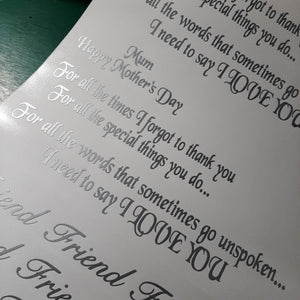 forgot to thank you
special things you do...
all the words that sometimes go
I need to say I LOVE YOU
Mum
Happy Mother's Day
For all the times I forgot to thank you
For all the special things you do...
For all the words that sometimes go unspoken...
I need to say I LOVE YOU
Friend Friend Friend
Friend Friend